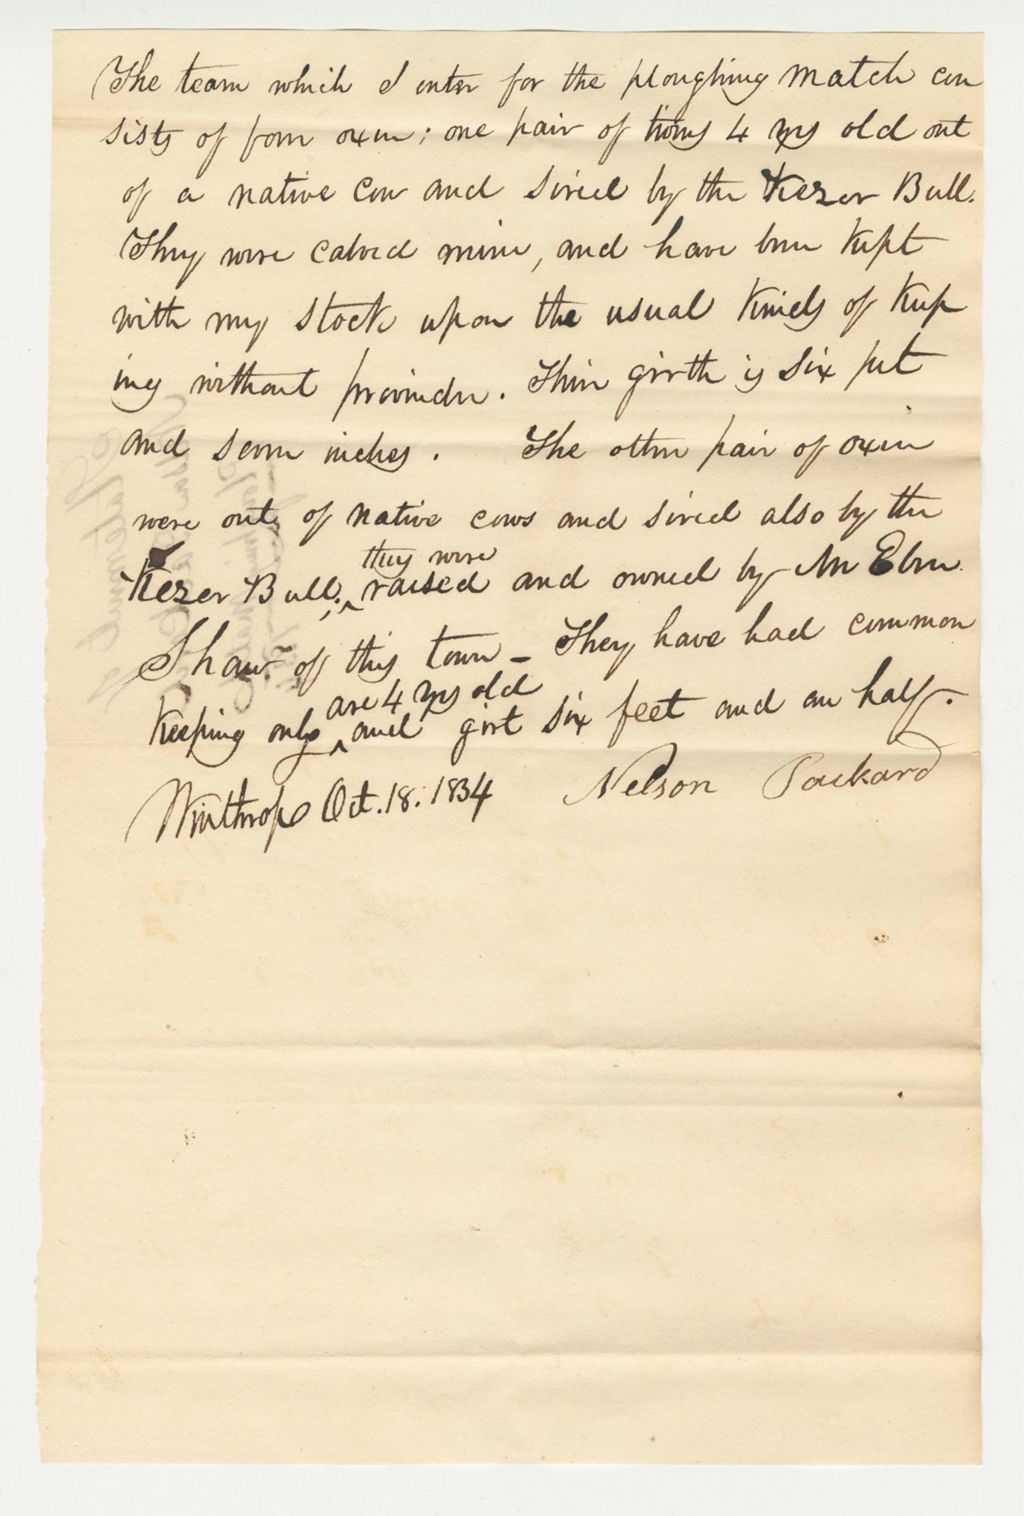 The team which I enter for the ploughing match con
sists of four oxen; one pair of twins 4 yrs old out
of a native cow and sired by the Kezer Bull.
They were calved mine, and have been kept
with my stock upon the usual kinds of keep
ing without provinder. Their girth is six feet
and seven inches. The other pair of oxen
were out of native cows and sired also by the
they were
Kezer Bull; ^ raised and owned by Mr Eben
Shaw of this town – They have had common
are 4 yrs old
keeping only ^ and girt six feet and an half.
Winthrop Oct. 18. 1834 Nelson Packard